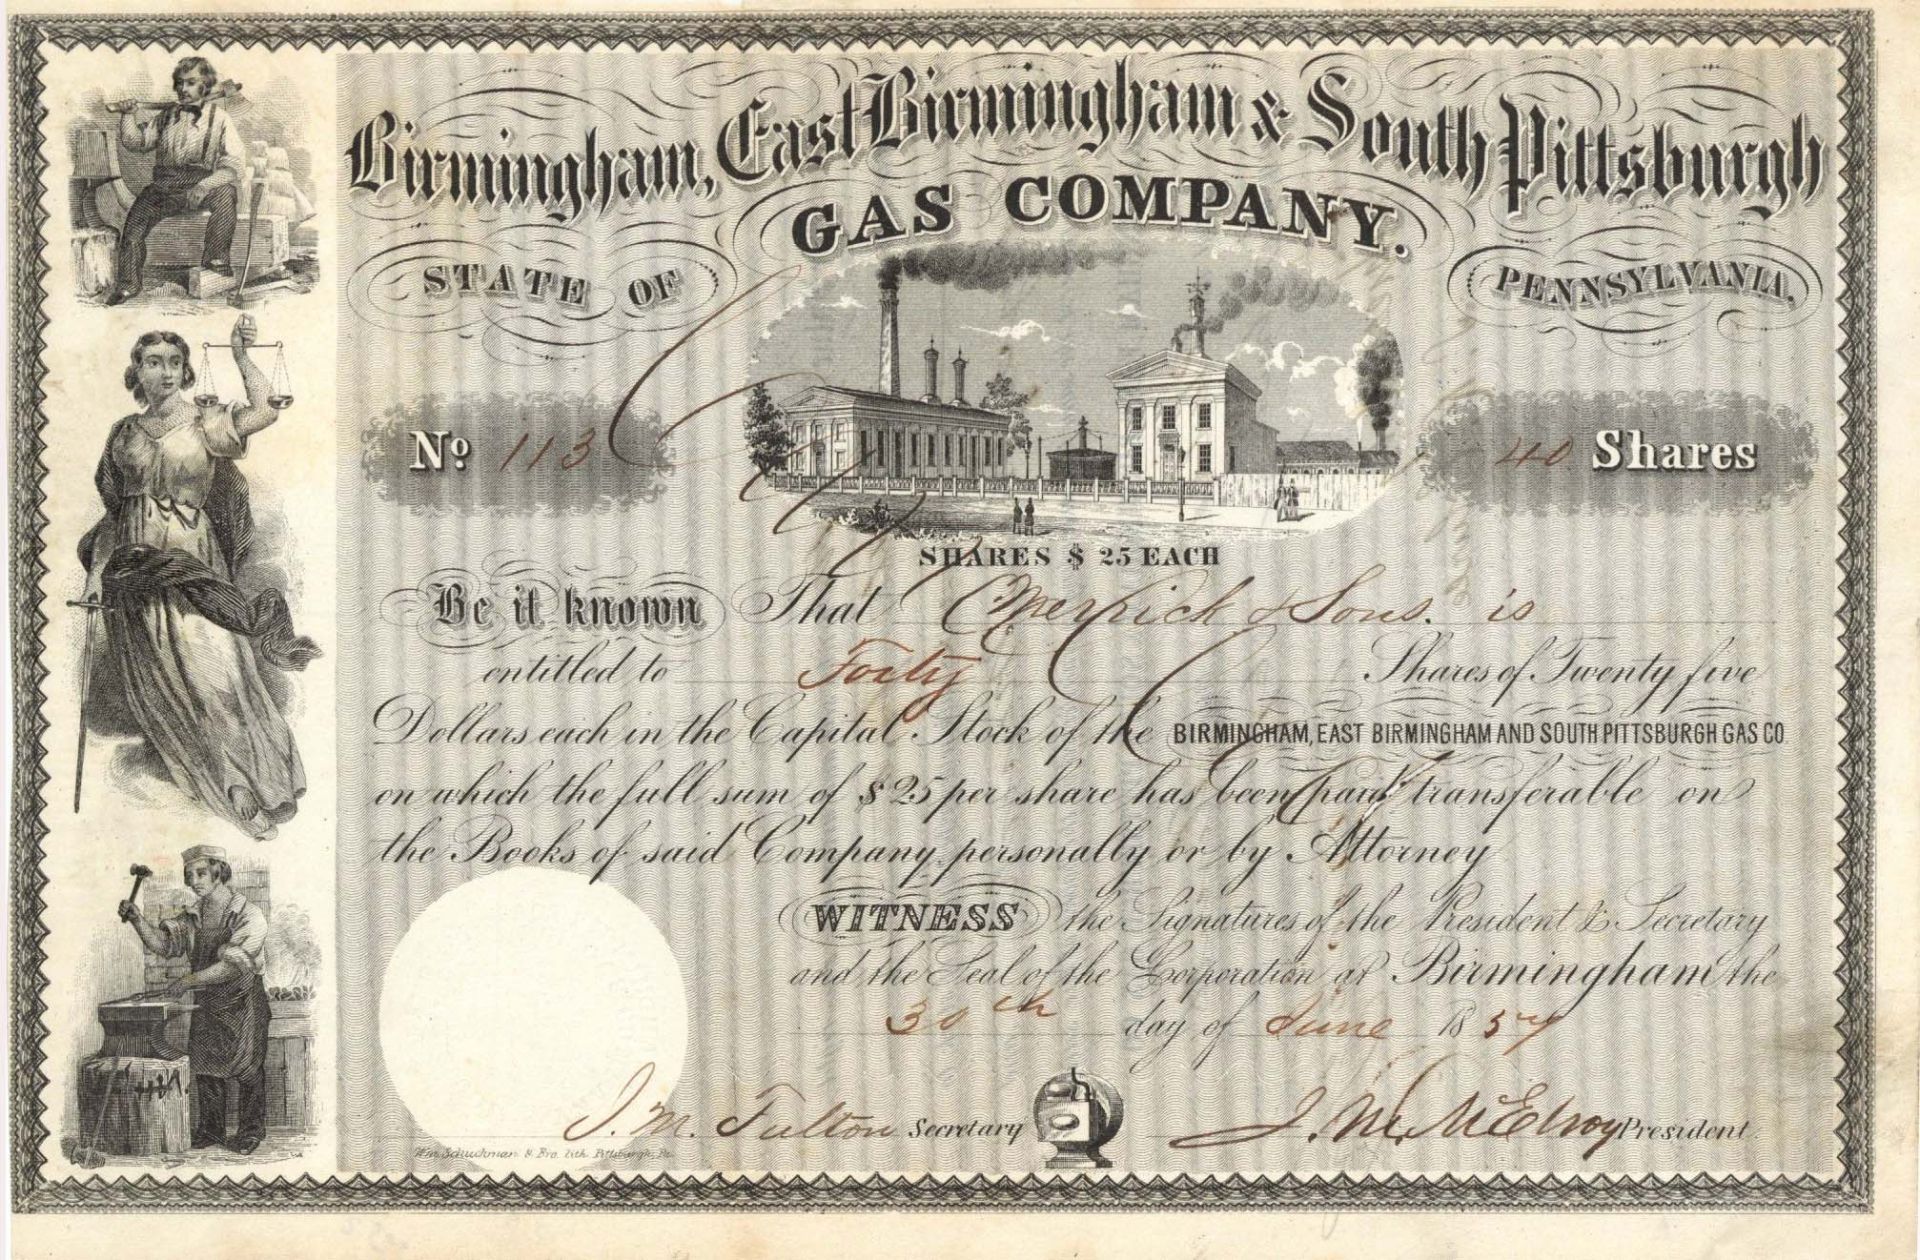 Birmingham, East Birmingham & South Pittsburgh
GAS COMPANY.
STATE OF
PENNSYLVANIA.
No. 113
40 Shares
SHARES $ 25 EACH
Be it known That Merrick & Sons. is
entitled to Forty Shares of Twenty five
Dollars each in the Capital Stock of the BIRMINGHAM, EAST BIRMINGHAM AND SOUTH PITTSBURGH GAS CO
on which the full sum of $25 per share has been paid transferable on
the Books of said Company, personally or by Attorney
WITNESS the Signatures of the President & Secretary
and the Seal of the Corporation at Birmingham the
30th day of June 1857
J. M. Fulton Secretary
J. M. McElroy President
Wm. Schuchman & Bro. Lith. Pittsburgh, Pa.